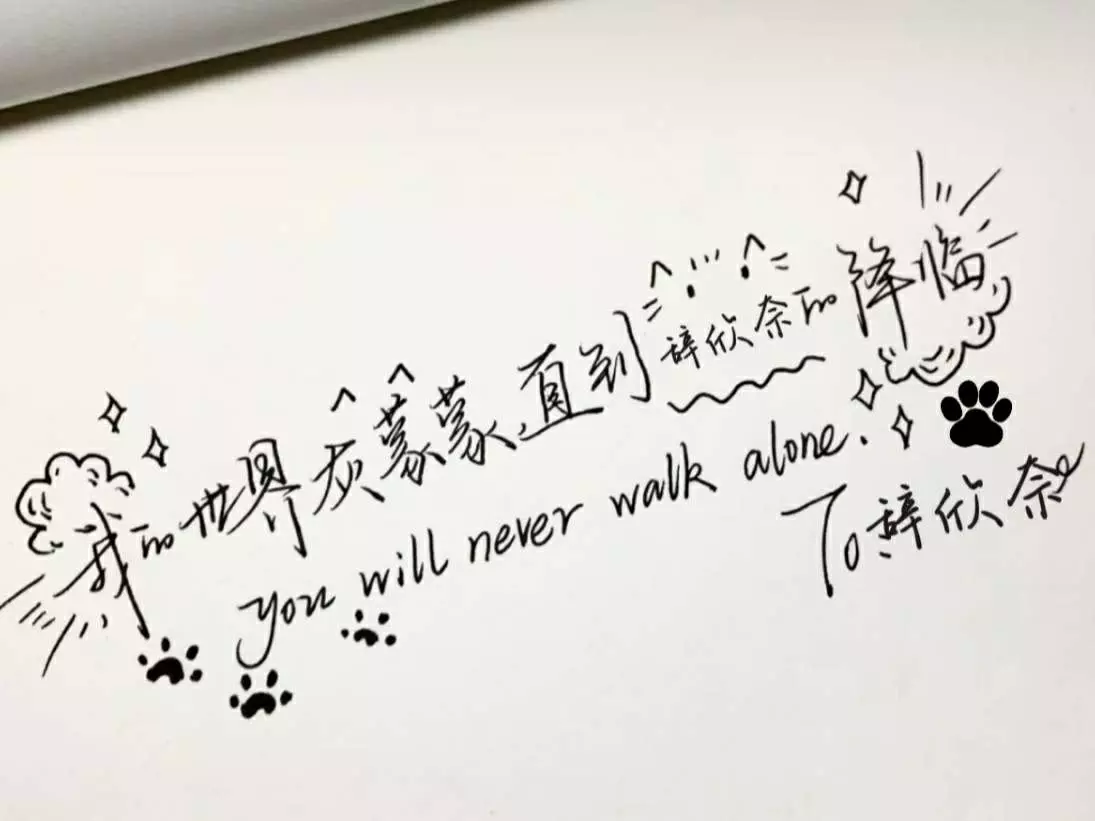 我的世界灰蒙蒙,直到辞欣奈的降临
you will never walk alone.
To辞欣奈